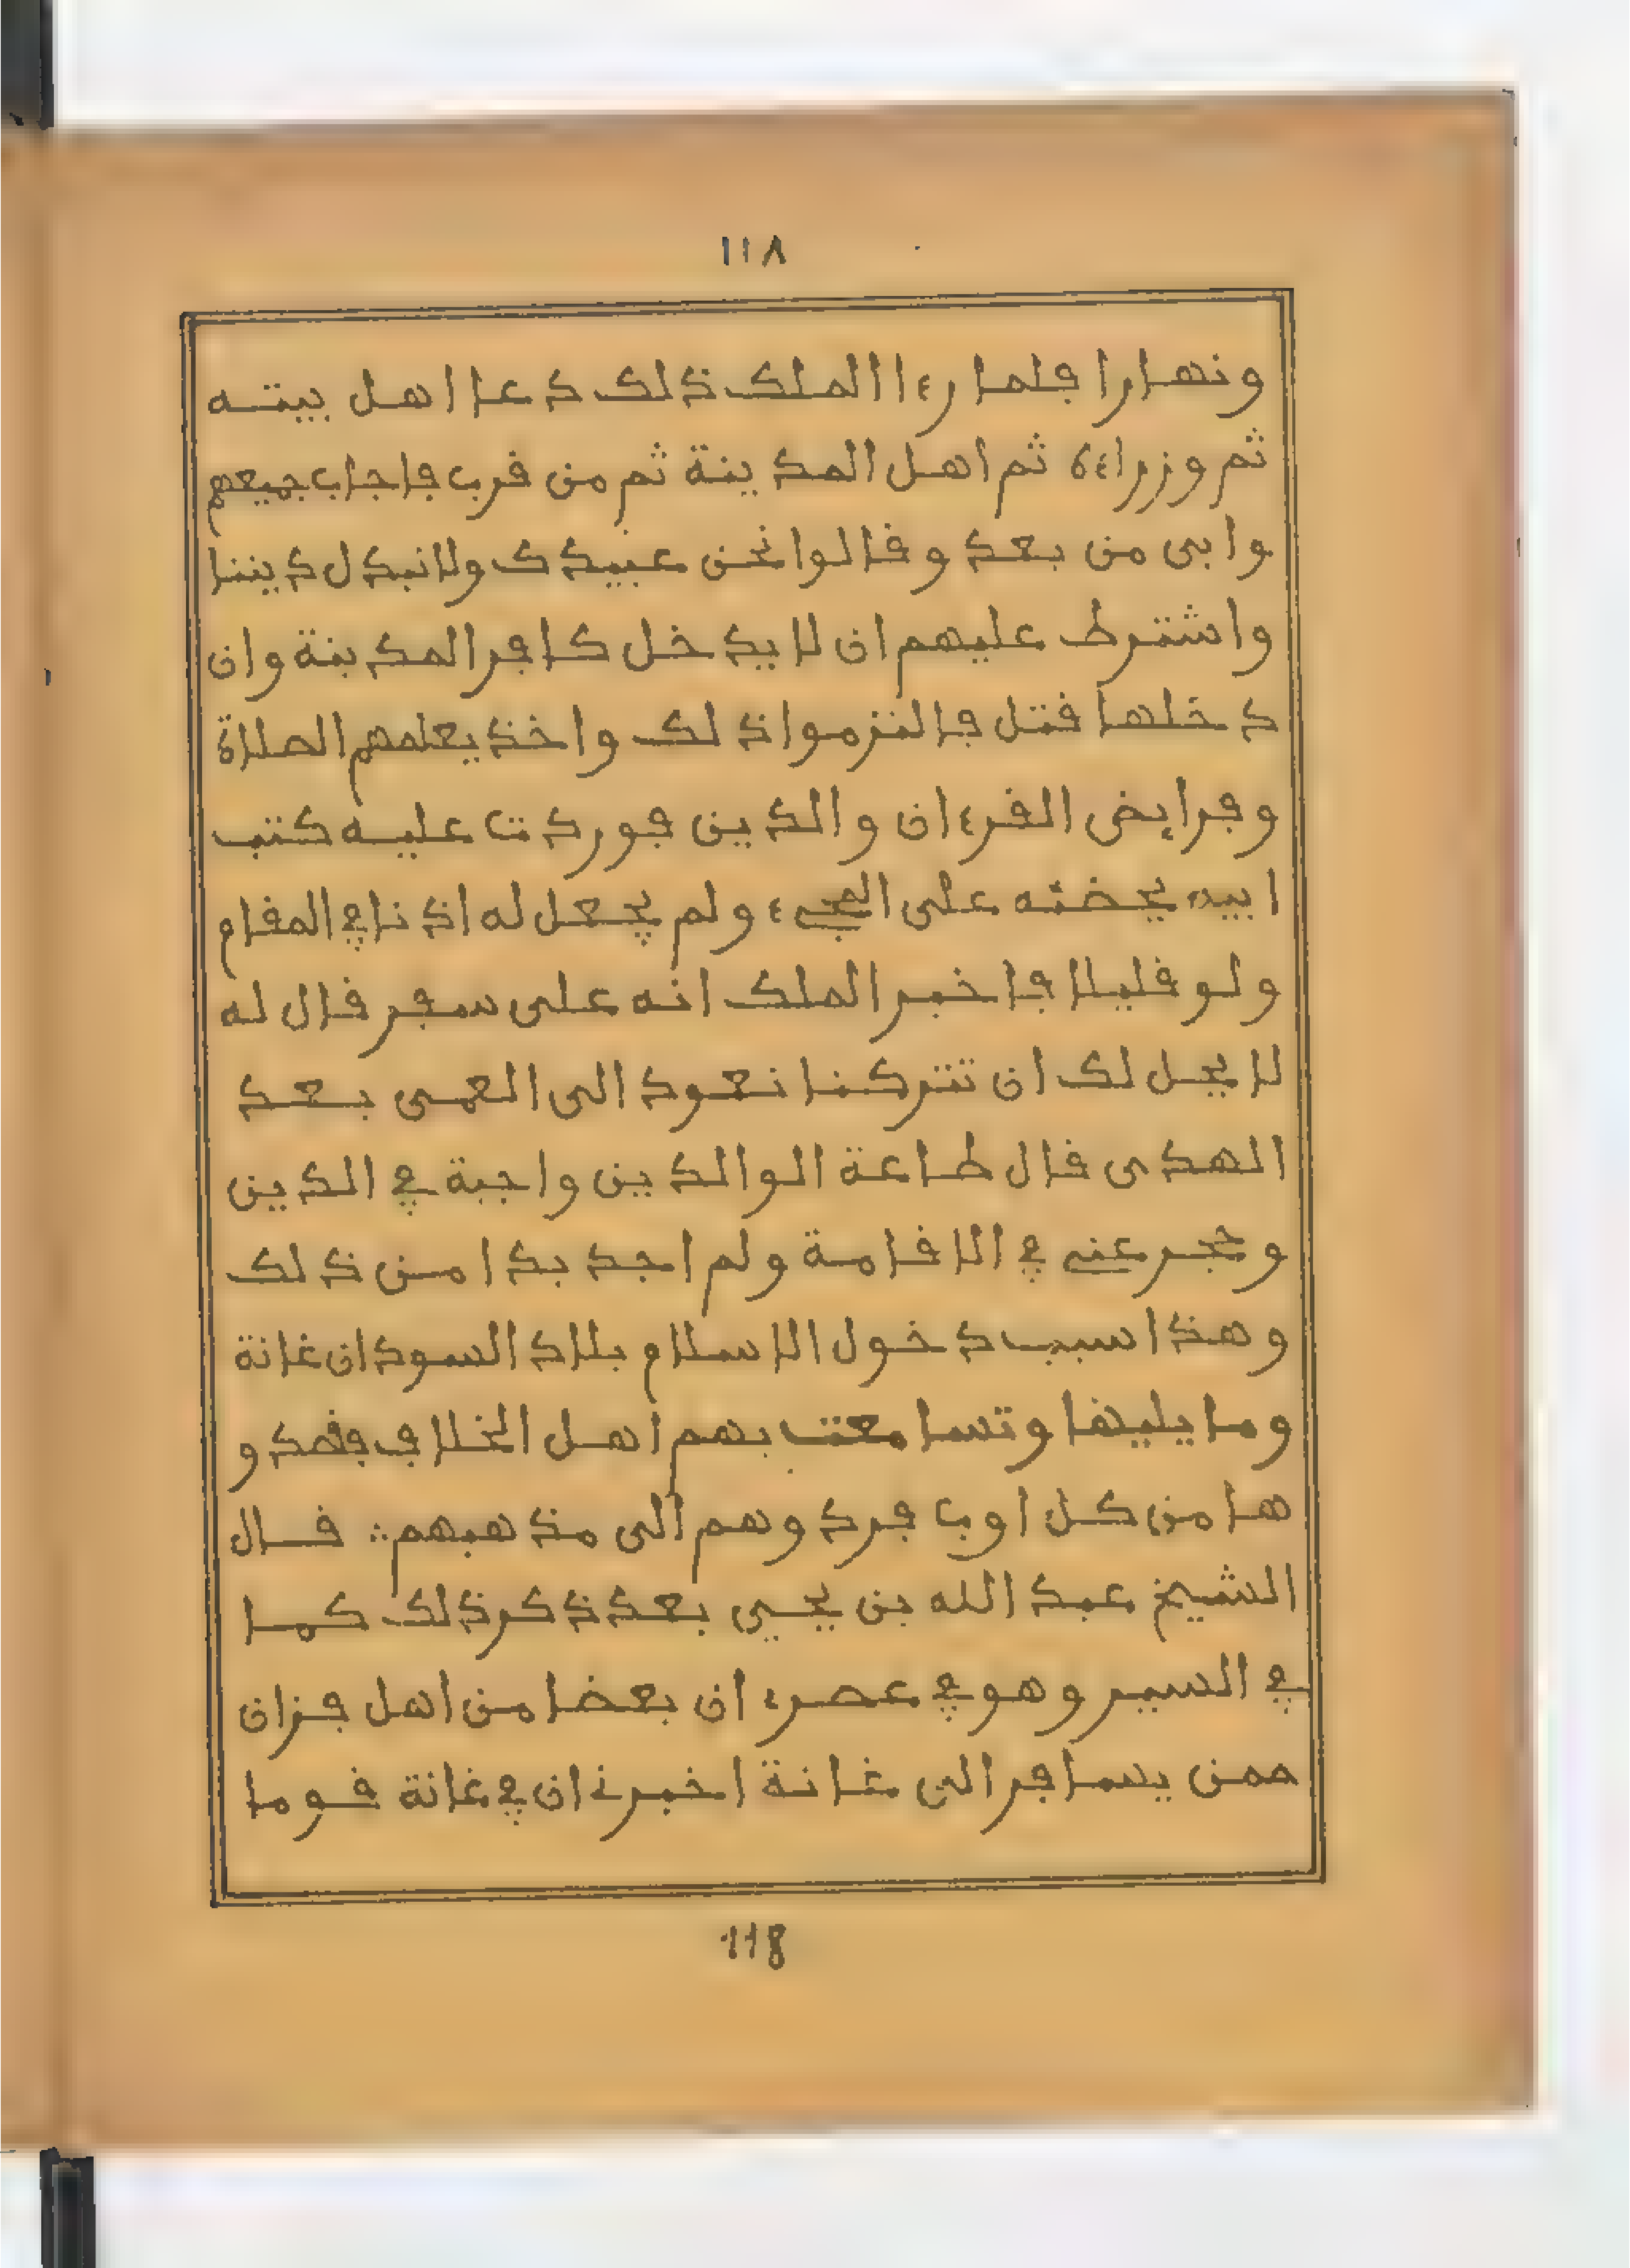 ١١٨
ونهارا فلما رءا الملك ذلك دعا اهل بيته
ثم وزراءه ثم اهل المدينة ثم من قرب فاجاب جميعهم
وابى من بعد وقالوا نحن عبيدك ولا نبدل ديننا
واشترط عليهم ان لا يدخل كافر المدينة وان
دخلها قتل فالتزموا ذلك واخذ يعلمهم الصلاة
وفرايض القرءان والدين فوردت عليه كتب
ابيه يحضه على المجيء ولم يجعل له اذنا في المقام
ولو قليلا فاخبر الملك انه على سفر قال له
لا يحل لك ان تتركنا نعود الى العمى بعد
الهدى قال طاعة الوالدين واجبة في الدين
وحجر عني في الاقامة ولم اجد بدا من ذلك
وهذا سبب دخول الاسلام بلاد السودان غانة
وما يليها وتسامعت بهم اهل الخلاف فقصدو
ها من كل اوب فردوهم الى مذهبهم قال
الشيخ عبد الله بن يحيى بعد ذكر ذلك كما
في السير وهو في عصره ان بعضا من اهل فزان
ممن يسافر الى غانة اخبرني ان في غانة قوما
118